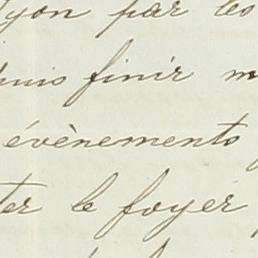 yon par les
puis finir m
évènements
ter le foyer